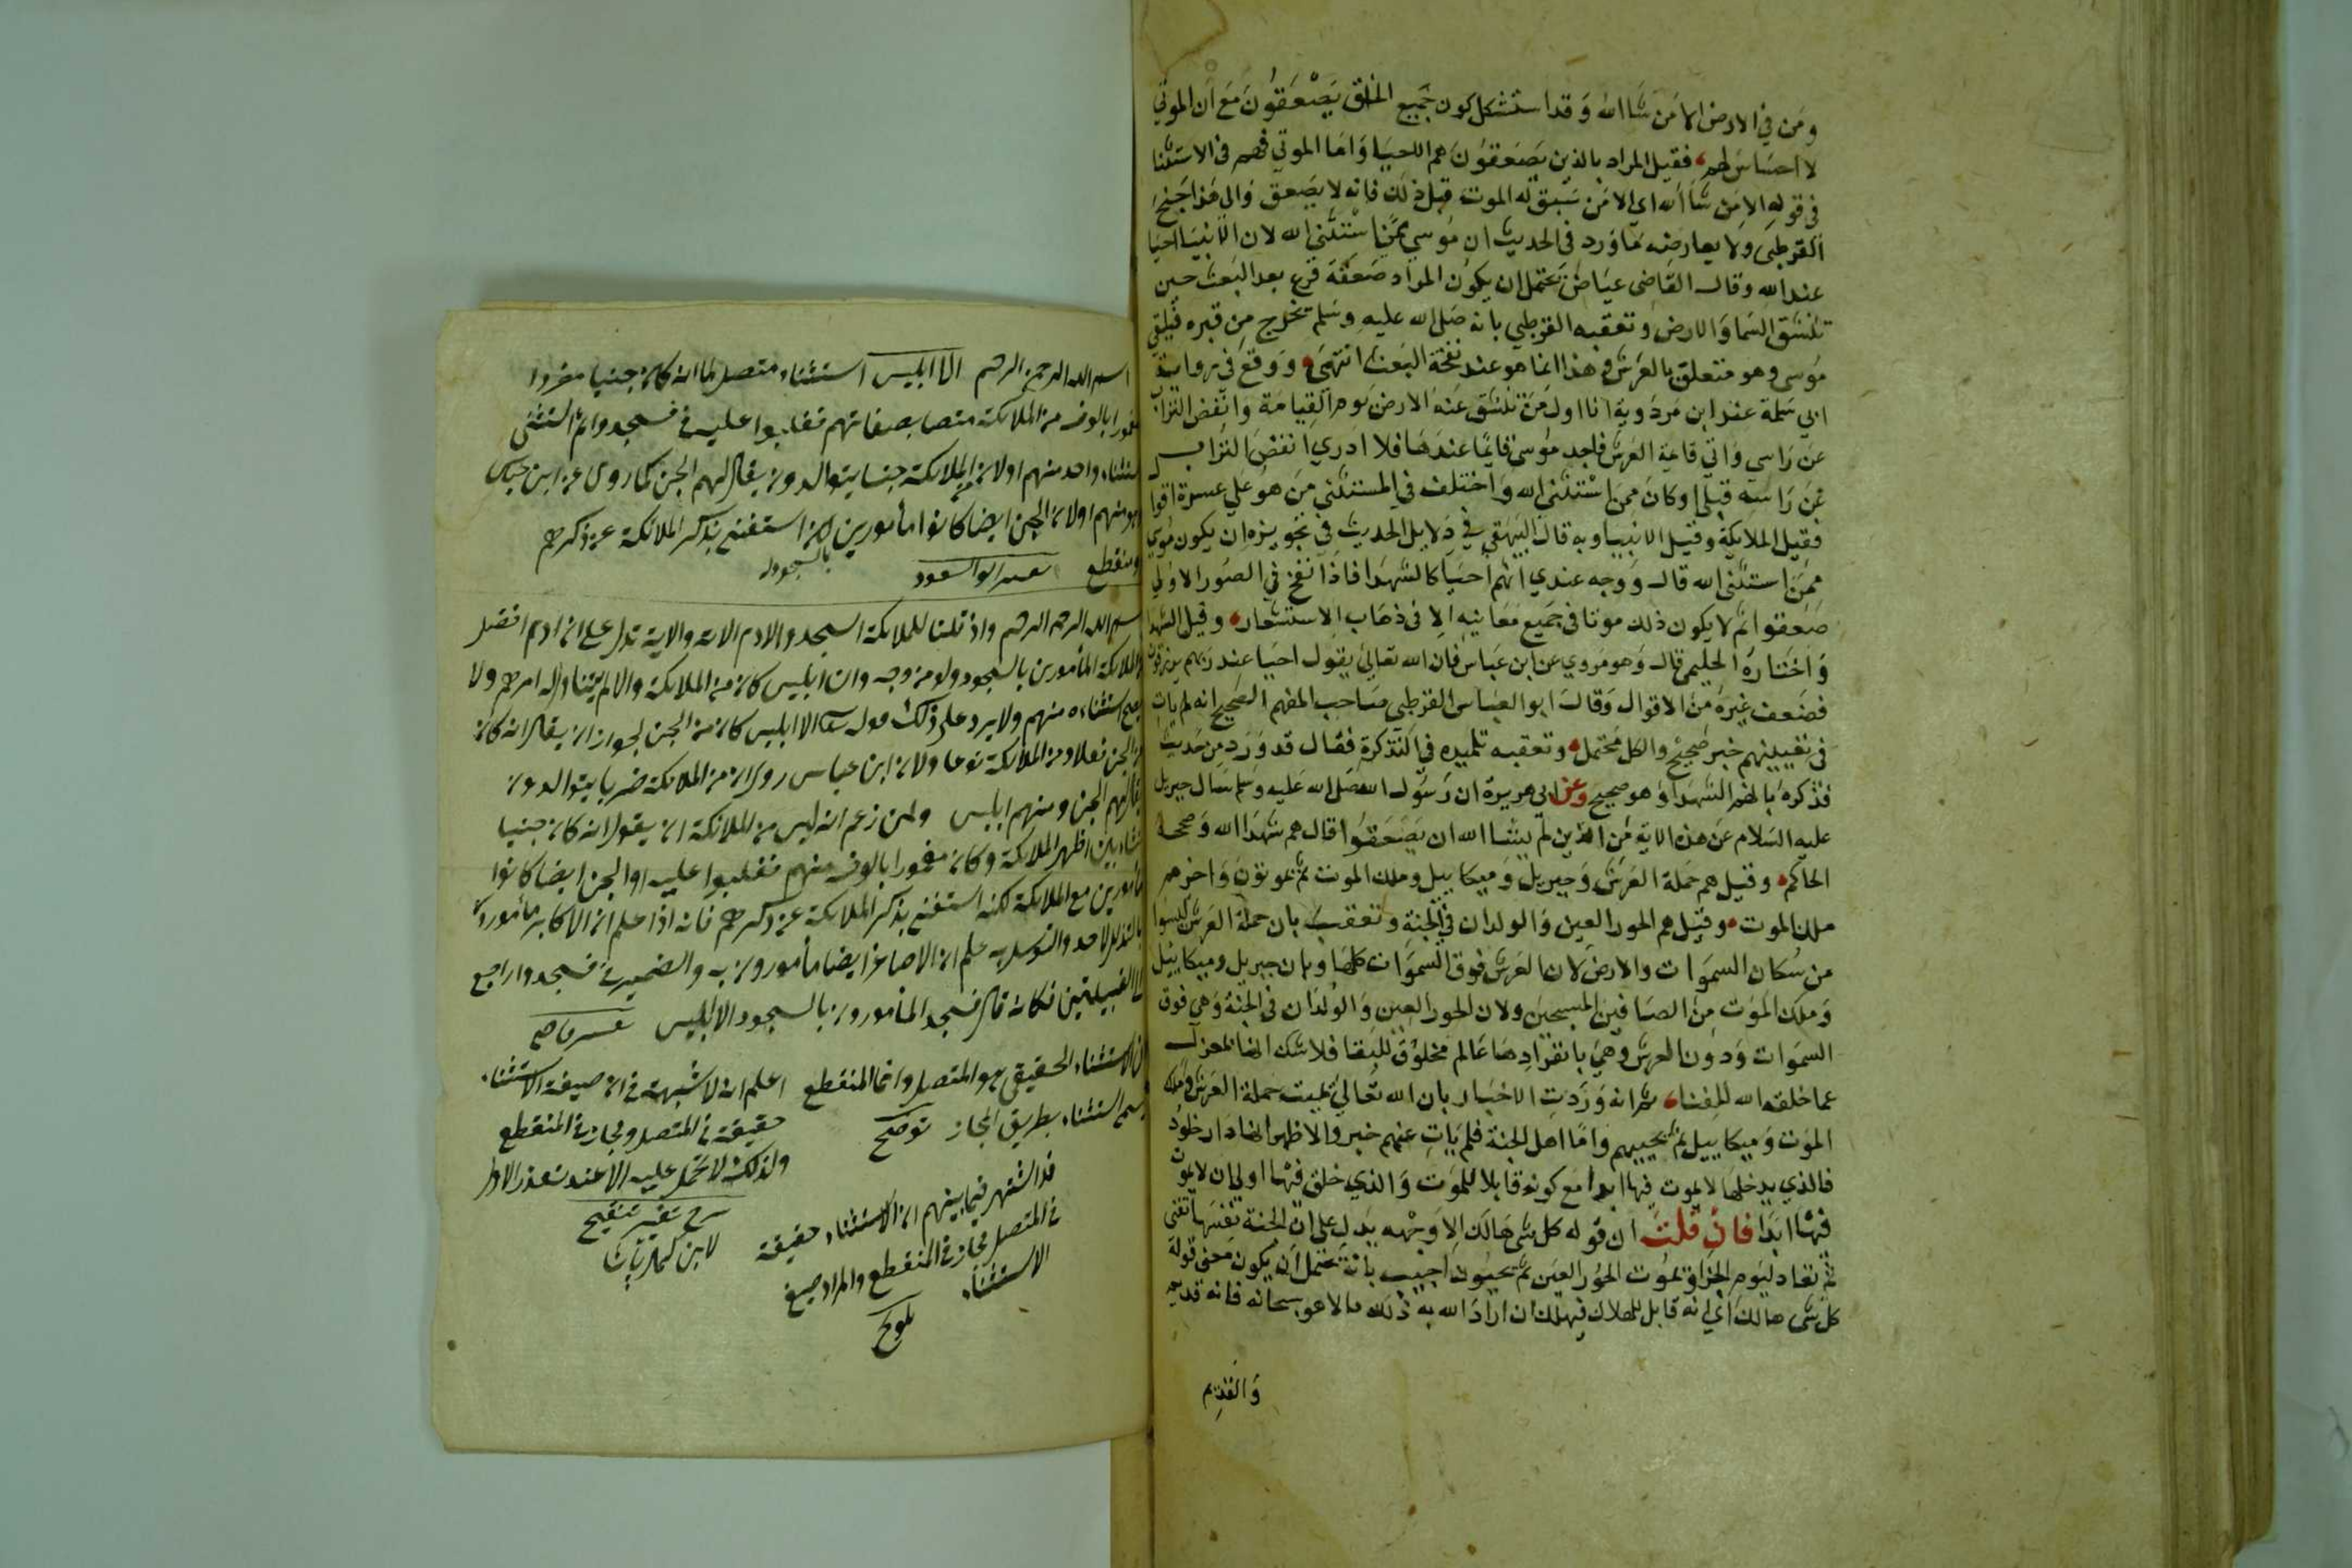 ومن في الارض الا من شا الله وقد استشكل كون جميع الخلق يصعقون مع ان الموتي
لا احساس لهم فقيل المراد بالذين يصعقون هم الاحيا واما الموتي فهم في الاستثنا
في قوله الا من شا الله اي الا من سبق له الموت قبل ذلك فانه لا يصعق والى هذا جنح
القرطبي ولا يعارضه ما ورد في الحديث ان موسي ممن استثني الله لان الانبيا احيا
عند الله وقال القاضي عياض يحتمل ان يكون المراد صعقة فزع بعد البعث حين
تنشق السما والارض وتعقبه القرطبي بانه صلى الله عليه وسلم يخرج من قبره فيلقي
موسى وهو متعلق بالعرش وهذا انما هو عند نفخة البعث انتهى ووقع في رواية
ابي سلمة عند ابن مردوية انا اول من تنشق عنه الارض يوم القيامة وانفض التراب
عن راسي واتي قائمة العرش فاجد موسى قايما عندها فلا ادري انفض التراب
عن راسه قبلي او كان ممن استثني الله واختلف في المستثني من هو علي عشرة اقوا
فقيل الملايكة وقيل الانبيا وبه قال البيهقي في دلايل الحديث في تجويزه ان يكون موسي
ممن استثنى الله قال ووجه عندي انهم احيا كالشهدا فاذا نفخ في الصور الاولى
صعقوا ثم لا يكون ذلك موتا في جميع معانيه الا في ذهاب الاستشعار وقيل الشهدا
واختاره الحليمي قال وهو مروي عن ابن عباس فان الله تعالى يقول احيا عند ربهم يرزقون
فضعف غيره من الاقوال وقال ابو العباس القرطبي صاحب المفهم الصحيح انه لم يات
في تعيينهم خبر صحيح والكل محتمل وتعقبه تلميده في التذكرة فقال قد ورد من حديث
فذكره بانهم الشهدا وهو صحيح وعن ابي هريرة ان رسول الله صلى الله عليه وسلم سال جبريل
عليه السلام عن هذه الاية من الذين لم يشا الله ان يصعقوا قال هم شهدا الله وصححه
الحاكم وقيل هم حملة العرش وجبريل وميكاييل وملك الموت ثم يموتون واخرهم
ملك الموت وقيل هم الحور العين والولدان في الجنة وتعقب بان حملة العرش ليسوا
من سكان السموات والارض لان العرش فوق السموات كلها وبان جبريل وميكاييل
وملك الموت من الصافين المسبحين ولان الحور العين والولدان في الجنة وهي فوق
السموات ودون العرش وهي بانفرادها عالم مخلوق للبقا فلا شك انها بمعزل
عما خلقه الله للفناء ثم انه وردت الاخبار بان الله تعالى يميت حملة العرش وملك
الموت وميكاييل ثم يحييهم واما اهل الجنة فلم يات عنهم خبر والاظهر انها دار خلود
فالذي يدخلها لا يموت فيها ابدا مع كونه قابلا للموت والذي خلق فيها اولى ان لا يموت
فيها ابدا فان قلت ان قوله كل شي هالك الا وجهه يدل علي ان الجنة نفسها تفنى
ثم تعاد ليوم الجزا ويموت الحور العين ثم يحيون اجيب بانه يحتمل ان يكون معنى قوله
كل شي هالك اي انه قابل للهلاك فيهلك ان اراد الله به ذلك الا هو سبحانه فانه قديم
والقديم
بسم الله الرحمن الرحيم الا ابليس استثناء متصل لما انه كان جنيا مفردا
مغمورا بالوف من الملائكة متصفا بصفاتهم فغلبوا عليه في فسجدوا ثم استثنى
استثناء واحد منهم اولان من الملائكة جنسا يتوالدون يقال لهم الجن كما روى عن ابن عباس
وهو منهم اولان الجن ايضا كانوا مأمورين لكن استغنى بذكر الملائكة عن ذكرهم
بالسجود له
او منقطع تفسير ابو السعود
بسم الله الرحمن الرحيم واذ قلنا للملائكة اسجدوا لادم الاية والاية تدل على ان ادم افضل
من الملائكة المأمورين بالسجود ولو من وجه وان ابليس كان من الملائكة والا لم يتناوله امرهم ولا
يصح استثناءه منهم ولا يرد على ذلك قوله تعالى الا ابليس كان من الجن لجواز ان يقال انه كان
من الجن فعلا ومن الملائكة نوعا ولان ابن عباس روى ان من الملائكة ضربا يتوالدون
يقال لهم الجن ومنهم ابليس ولمن زعم انه ليس من الملائكة ان يقول انه كان جنيا
نشاء بين اظهر الملائكة وكان مغمورا بالوف منهم فغلبوا عليه او الجن ايضا كانوا
مأمورين مع الملائكة لكنه استغنى بذكر الملائكة عن ذكرهم فانه اذا علم ان الاكابر مأمورون
بالتذلل لاحد والتوسل به علم ان الاصاغر ايضا مأمورون به والضمير في فسجدوا راجع
الى القبيلتين فكانه قال فسجد المأمورون بالسجود الا ابليس تفسير قاضي
ان الاستثناء الحقيقي هو المتصل وانما المنقطع
يسمى استثناء بطريق المجاز توضيح
قد اشتهر فيما بينهم ان الاستثناء حقيقة
في المتصل مجاز في المنقطع والمراد صيغ
الاستثناء
تلويح
اعلم انه لا شبهة في ان صيغة الاستثناء
حقيقة في المتصل ومجاز في المنقطع
ولذلك لا تحمل عليه الا عند تعذر الاول
شرح تغيير تنقيح
لابن كمال پاشا